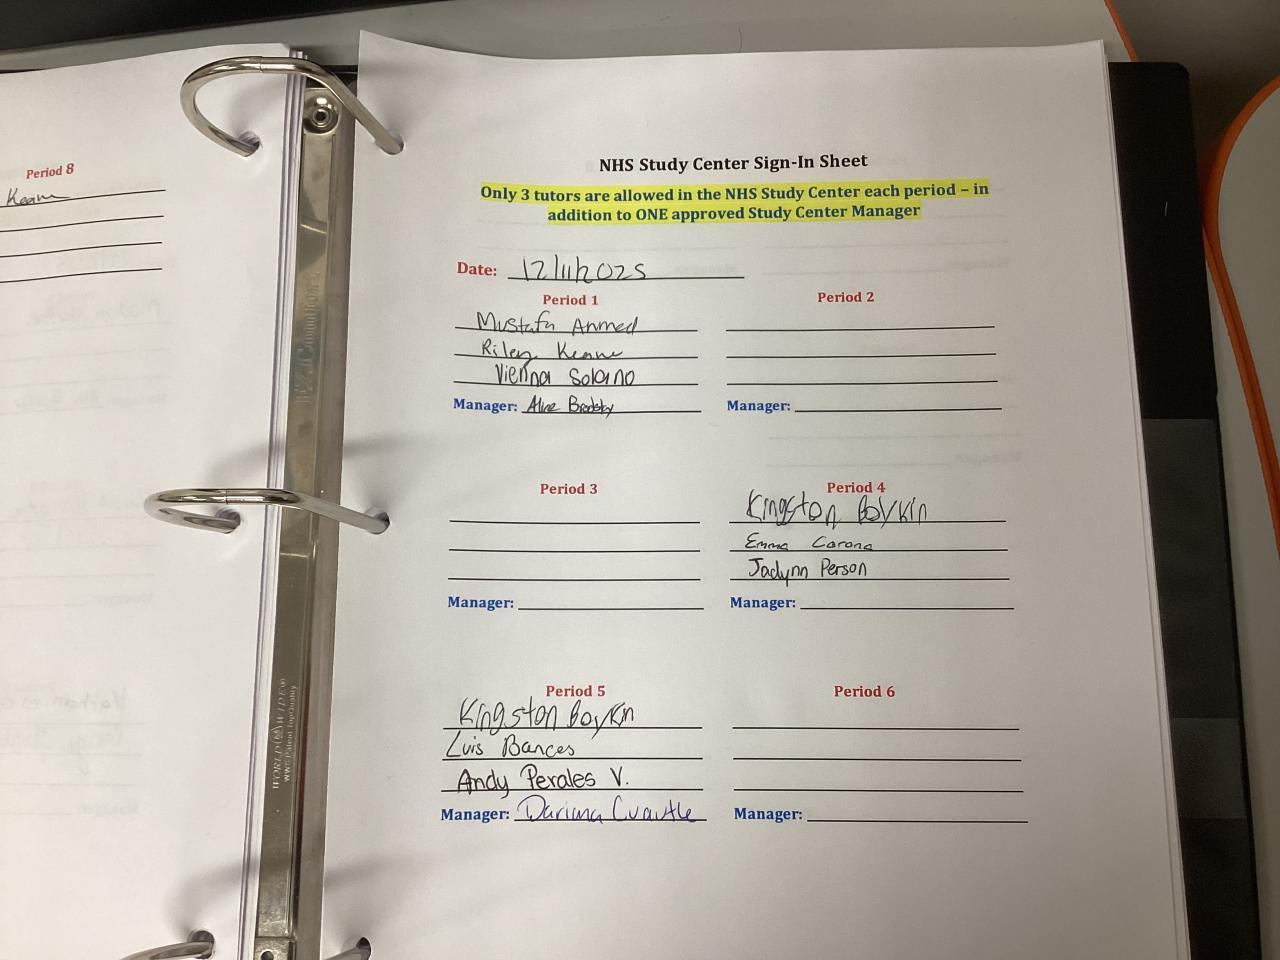 Period 8
Keane
NHS Study Center Sign-In Sheet
Only 3 tutors are allowed in the NHS Study Center each period – in
addition to ONE approved Study Center Manager
Date: 12/11/2025
Period 1
Mustafa Ahmed
Riley Keane
Vienna Solano
Manager: Aline Brodsky
Period 2
Manager:
Period 3
Manager:
Period 4
Kingston Boykin
Emma Corona
Jadynn Person
Manager:
Period 5
Kingston Boykin
Luis Bances
Andy Perales V.
Manager: Dariana Cuautle
Period 6
Manager:
WORLD WIDE